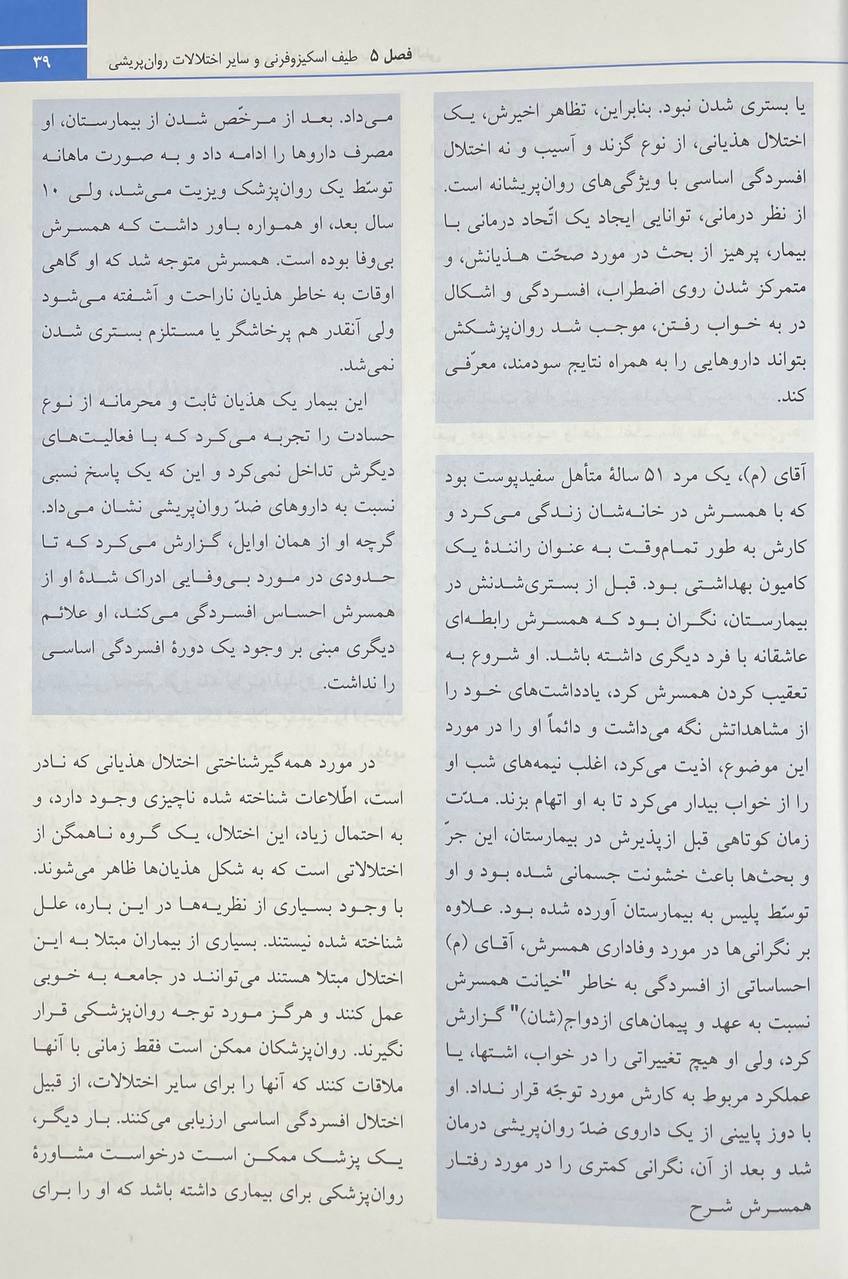 ۳۹
فصل ۵ طیف اسکیزوفرنی و سایر اختلالات روان‌پریشی
یا بستری شدن نبود. بنابراین، تظاهر اخیرش، یک
اختلال هذیانی، از نوع گزند و آسیب و نه اختلال
افسردگی اساسی با ویژگی‌های روان‌پریشانه است.
از نظر درمانی، توانایی ایجاد یک اتّحاد درمانی با
بیمار، پرهیز از بحث در مورد صحّت هذیانش، و
متمرکز شدن روی اضطراب، افسردگی و اشکال
در به خواب رفتن، موجب شد روان‌پزشکش
بتواند داروهایی را به همراه نتایج سودمند، معرّفی
کند.
آقای (م)، یک مرد ۵۱ سالهٔ متأهل سفیدپوست بود
که با همسرش در خانه‌شان زندگی می‌کرد و
کارش به طور تمام‌وقت به عنوان رانندهٔ یک
کامیون بهداشتی بود. قبل از بستری‌شدنش در
بیمارستان، نگران بود که همسرش رابطه‌ای
عاشقانه با فرد دیگری داشته باشد. او شروع به
تعقیب کردن همسرش کرد، یادداشت‌های خود را
از مشاهداتش نگه می‌داشت و دائماً او را در مورد
این موضوع، اذیت می‌کرد، اغلب نیمه‌های شب او
را از خواب بیدار می‌کرد تا به او اتهام بزند. مدّت
زمان کوتاهی قبل ازپذیرش در بیمارستان، این جرّ
و بحث‌ها باعث خشونت جسمانی شده بود و او
توسّط پلیس به بیمارستان آورده شده بود. علاوه
بر نگرانی‌ها در مورد وفاداری همسرش، آقای (م)
احساساتی از افسردگی به خاطر "خیانت همسرش
نسبت به عهد و پیمان‌های ازدواج(شان)" گزارش
کرد، ولی او هیچ تغییراتی را در خواب، اشتها، یا
عملکرد مربوط به کارش مورد توجّه قرار نداد. او
با دوز پایینی از یک داروی ضدّ روان‌پریشی درمان
شد و بعد از آن، نگرانی کمتری را در مورد رفتار
همسرش شرح
می‌داد. بعد از مرخّص شدن از بیمارستان، او
مصرف داروها را ادامه داد و به صورت ماهانه
توسّط یک روان‌پزشک ویزیت می‌شد، ولی ۱۰
سال بعد، او همواره باور داشت که همسرش
بی‌وفا بوده است. همسرش متوجه شد که او گاهی
اوقات به خاطر هذیان ناراحت و آشفته می‌شود
ولی آنقدر هم پرخاشگر یا مستلزم بستری شدن
نمی‌شد.
این بیمار یک هذیان ثابت و محرمانه از نوع
حسادت را تجربه می‌کرد که با فعالیت‌های
دیگرش تداخل نمی‌کرد و این که یک پاسخ نسبی
نسبت به داروهای ضدّ روان‌پریشی نشان می‌داد.
گرچه او از همان اوایل، گزارش می‌کرد که تا
حدودی در مورد بی‌وفایی ادراک شدهٔ او از
همسرش احساس افسردگی می‌کند، او علائم
دیگری مبنی بر وجود یک دورهٔ افسردگی اساسی
را نداشت.
در مورد همه‌گیرشناختی اختلال هذیانی که نادر
است، اطّلاعات شناخته شده ناچیزی وجود دارد، و
به احتمال زیاد، این اختلال، یک گروه ناهمگن از
اختلالاتی است که به شکل هذیان‌ها ظاهر می‌شوند.
با وجود بسیاری از نظریه‌ها در این باره، علل
شناخته شده نیستند. بسیاری از بیماران مبتلا به این
اختلال مبتلا هستند می‌توانند در جامعه به خوبی
عمل کنند و هرگز مورد توجه روان‌پزشکی قرار
نگیرند. روان‌پزشکان ممکن است فقط زمانی با آنها
ملاقات کنند که آنها را برای سایر اختلالات، از قبیل
اختلال افسردگی اساسی ارزیابی می‌کنند. بار دیگر،
یک پزشک ممکن است درخواست مشاورهٔ
روان‌پزشکی برای بیماری داشته باشد که او را برای